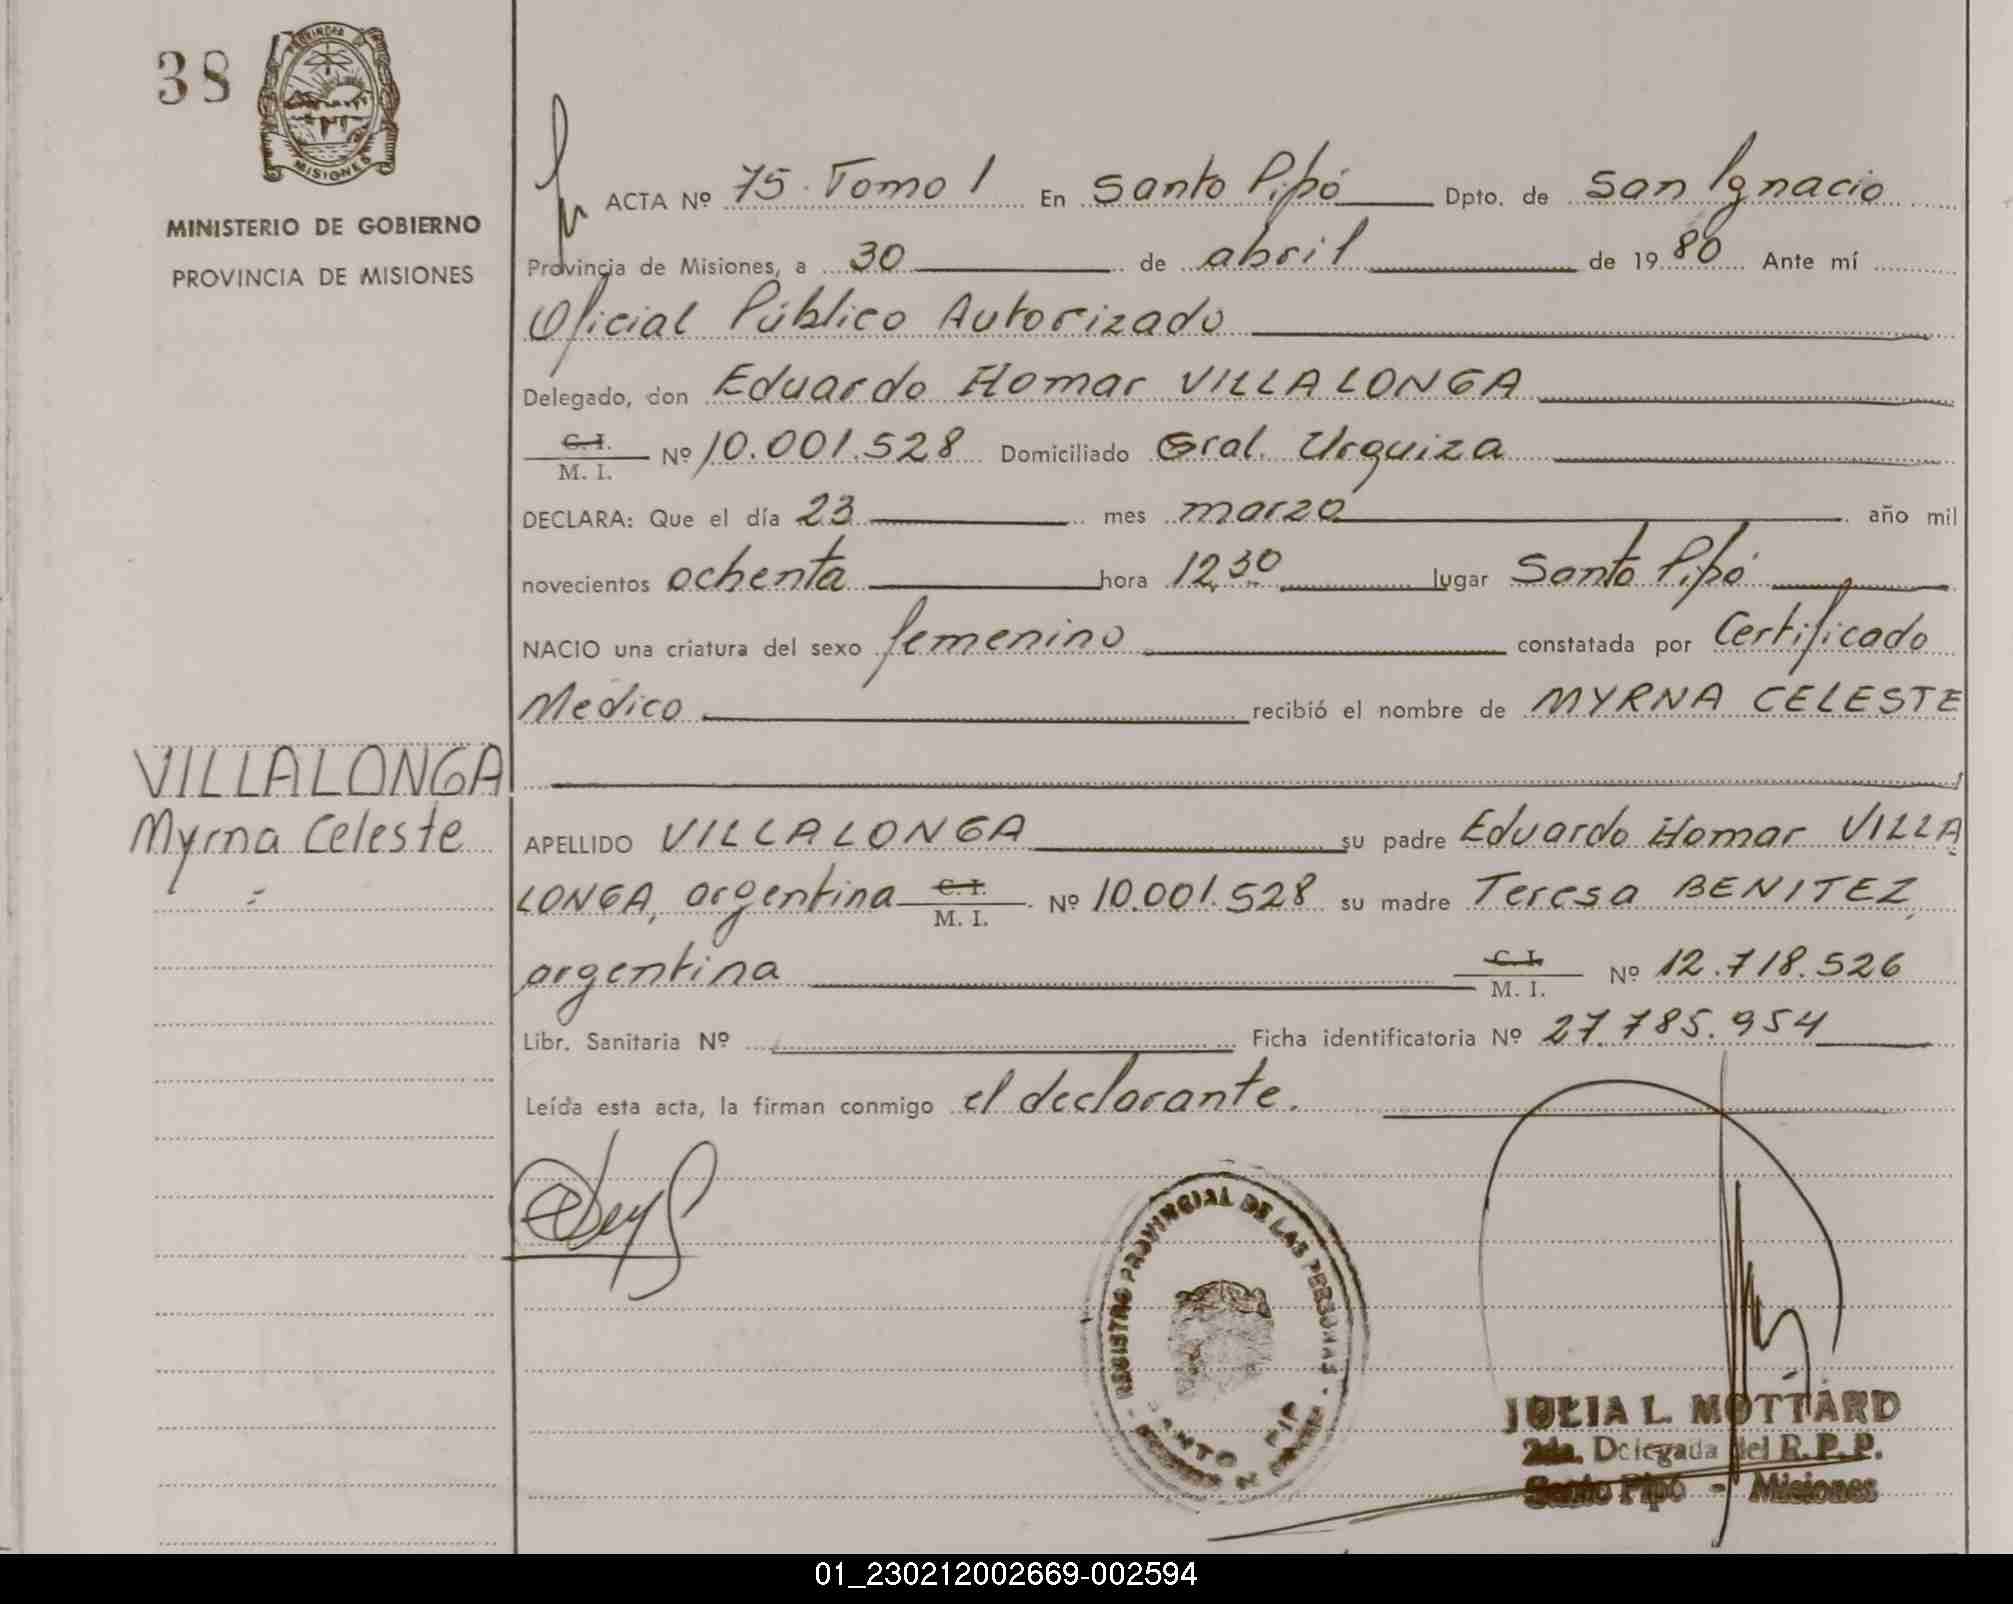 38
PROVINCIA DE
MISIONES
MINISTERIO DE GOBIERNO
PROVINCIA DE MISIONES
VILLALONGA
Myrna Celeste
ACTA Nº 75 Tomo 1 En Santo Pipó Dpto. de San Ignacio
Provincia de Misiones, a 30 de abril de 1980 Ante mí
Oficial Público Autorizado
Delegado, don Eduardo Homar VILLALONGA
C. I.
M. I. Nº 10.001.528 Domiciliado Gral. Urquiza
DECLARA: Que el día 23 mes marzo año mil
novecientos ochenta hora 12,30 lugar Santo Pipó
NACIO una criatura del sexo femenino constatada por Certificado
Medico recibió el nombre de MYRNA CELESTE
APELLIDO VILLALONGA su padre Eduardo Homar VILLA
LONGA, argentina C. I. M. I. Nº 10.001.528 su madre Teresa BENITEZ,
argentina C. I. M. I. Nº 12.718.526
Libr. Sanitaria Nº Ficha identificatoria Nº 27.785.954
Leída esta acta, la firman conmigo el declarante.
REGISTRO PROVINCIAL DE LAS PERSONAS
JULIA L. MOTTARD
2da. Delegada del R. P. P.
Santo Pipó - Misiones
01_230212002669-002594